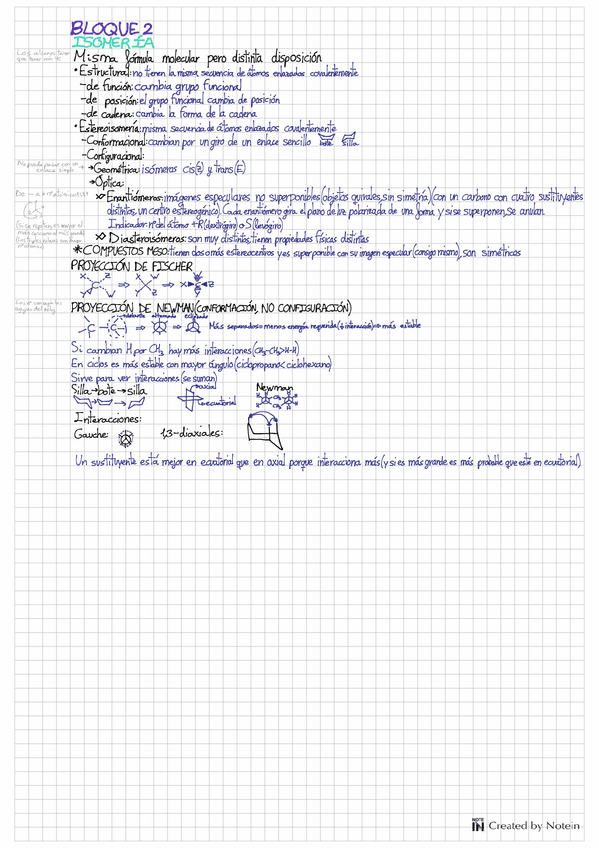 BLOQUE 2
ISOMERÍA
Misma fórmula molecular pero distinta disposición
•Estructural: no tienen la misma secuencia de átomos enlazados covalentemente
-de función: cambia grupo funcional
-de posición: el grupo funcional cambia de posición
-de cadena: cambia la forma de la cadena
•Estereoisomería: misma secuencia de átomos enlazados covalentemente
-Conformacional: cambian por un giro de un enlace sencillo bote silla
-Configuracional:
No puede pasar con un enlace simple
→Geométrica: isómeros cis(Z) y trans(E)
→Óptica:
Enantiómeros: imágenes especulares no superponibles (objetos quirales, sin simetría) (con un carbono con cuatro sustituyentes
distintos, un centro estereogénico). Cada enantiómero gira el plano de luz polarizada de una forma y si se superponen, se anulan.
Indicador: nº del átomo + R (dextrógiro) o S (levógiro)
Diastereoisómeros: son muy distintos, tienen propiedades físicas distintas
*COMPUESTOS MESO: tienen dos o más estereocentros y es superponible con su imagen especular (consigo mismo), son simétricos
PROYECCIÓN DE FISCHER
X Z ⇒ X Z ⇒ X Z
Y W Y
PROYECCIÓN DE NEWMAN (CONFORMACIÓN, NO CONFIGURACIÓN)
alternado eclipsado
Más separados = menos energía requerida (↓ interacción) ⇒ más estable
Si cambian H por CH3 hay más interacciones (CH3-CH3>H-H)
En ciclos es más estable con mayor ángulo (ciclopropano < ciclohexano)
Sirve para ver interacciones (se suman)
Silla→bote→silla
axial
ecuatorial
Newman
Interacciones:
Gauche: 1,3-diaxiales:
Un sustituyente está mejor en ecuatorial que en axial porque interacciona más (y si es más grande es más probable que esté en ecuatorial)
NOTE IN Created by Notein